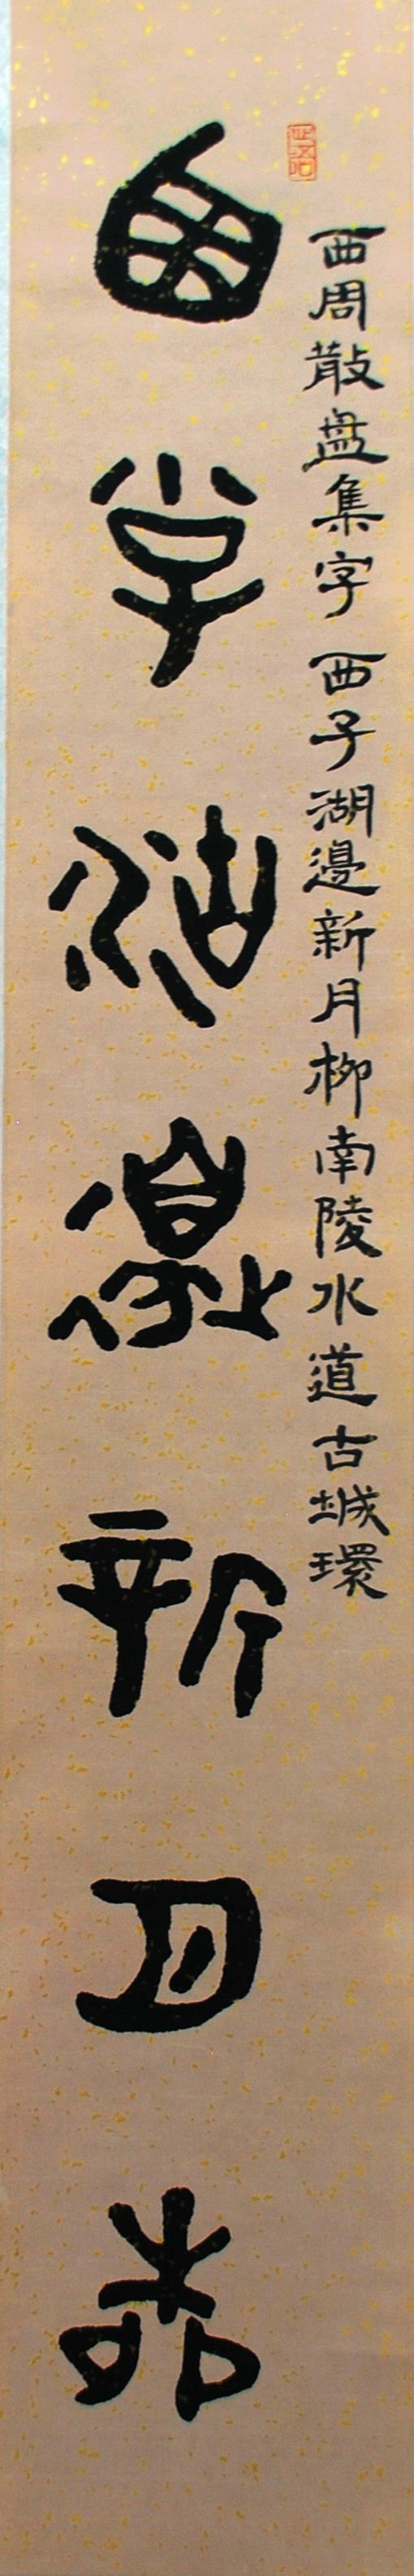 西周散盘集字 西子湖邊新月柳南陵水道古城環
西子湖邊新月柳